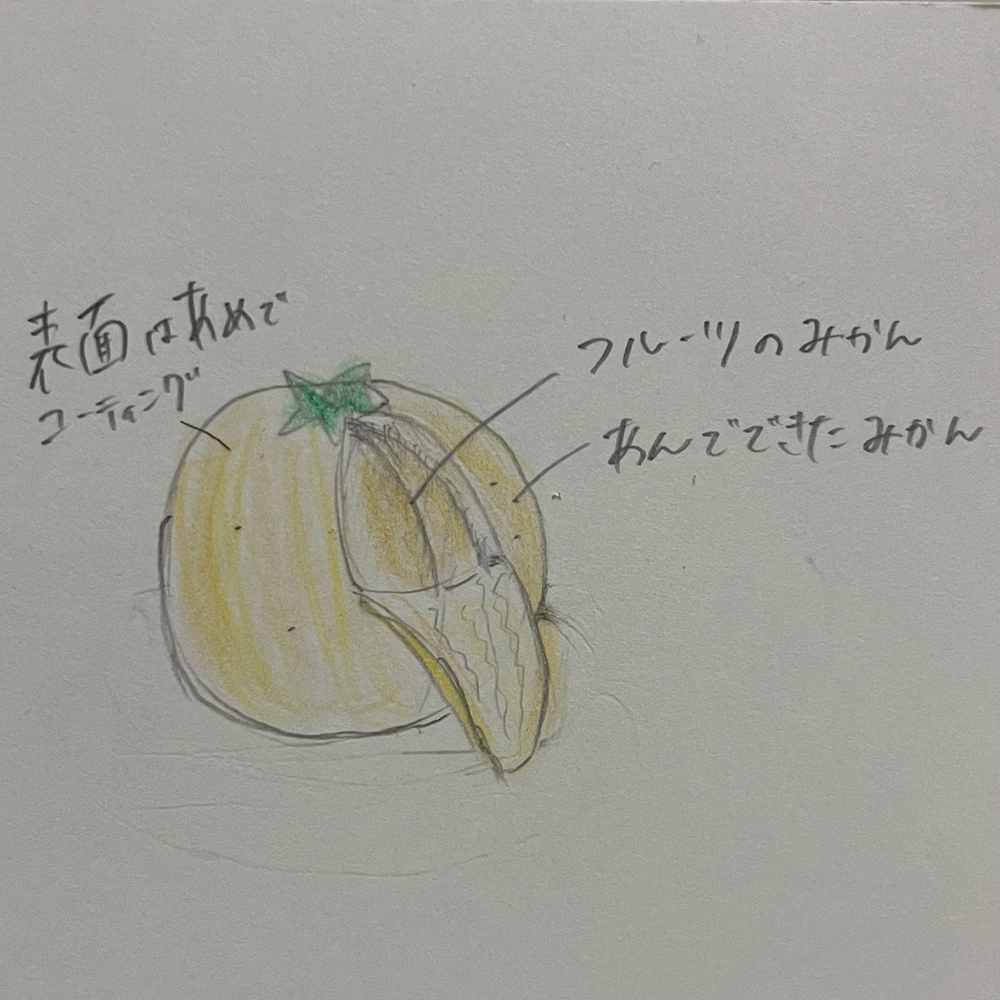 表面はあめで
コーティング
フルーツのみかん
あんでできたみかん